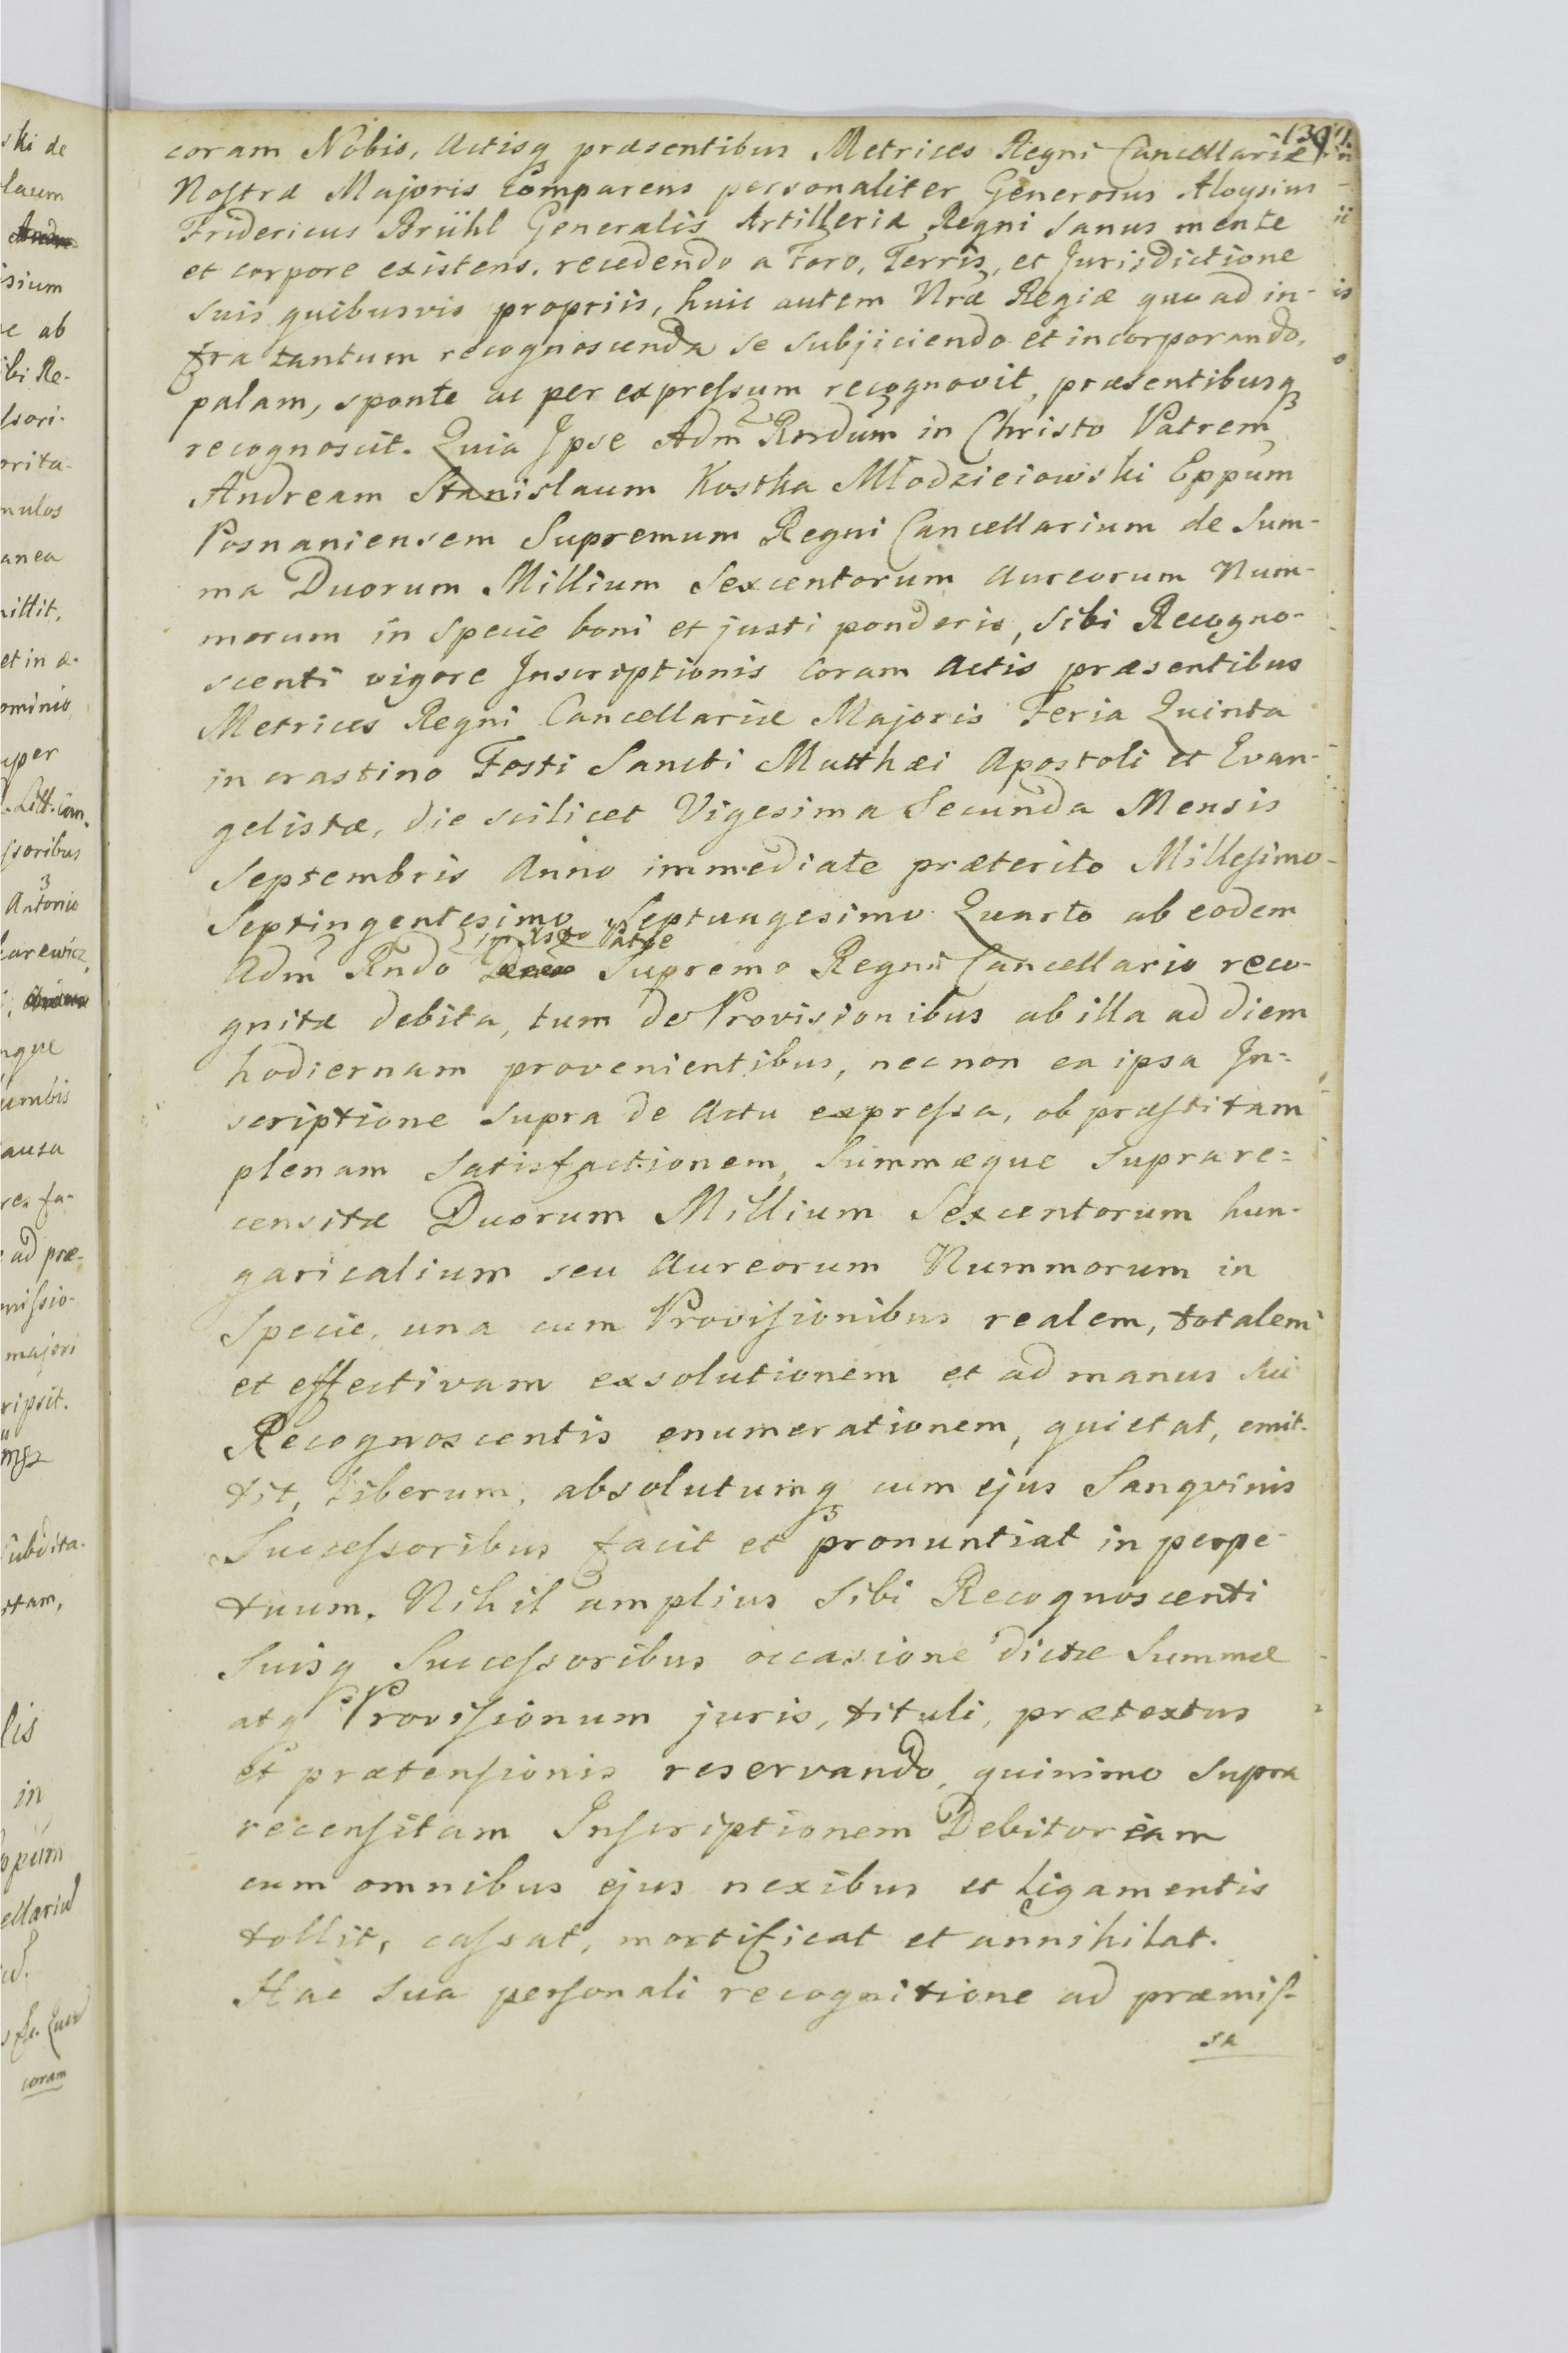 coram Nobis, Actisq₃ præsentibus Metrices Regni Cancellariæ
Nostræ Majoris Comparens personaliter Generosus Aloysius
Fridericus Brühl Generalis Artilleriæ Regni sanus mente
et corpore existens, recedendo a Foro, Terris, et Jurisdictione
suis quibusvis propriis, huic autem Nræ Regiæ quo ad in-
fra tantum recognoscenda se subjiciendo et incorporando,
palam, sponte ac per expressum recognovit, præsentibusq₃
recognoscit. Quia Ipse Adm Rndum in Christo Patrem
Andream Stanislaum Kostka Młodzieiowski Eppum
Posnaniensem Supremum Regni Cancellarium de Sum-
ma Duorum Millium Sexcentorum Aureorum Num-
morum in specie boni et justi ponderis, sibi Recogno-
scenti vigore Inscriptionis coram Actis præsentibus
Metrices Regni Cancellariæ Majoris Feria Quinta
in crastino Festi Sancti Matthæi Apostoli et Evan-
gelistæ, die scilicet Vigesima Secunda Mensis
Septembris Anno immediate præterito Millesimo
Septingentesimo Septuagesimo Quarto ab eodem
in Xsto Patre
Adm Rndo Supremo Regni Cancellario reco-
gnitæ debita, tum de Provisionibus ab illa ad diem
hodiernam provenientibus, nec non ea ipsa In-
scriptione supra de actu expressa, ob præstitam
plenam satisfactionem, Summæque suprare-
censitæ Duorum Millium Sexcentorum hun-
garicalium seu Aureorum Nummorum in
Specie, una cum Provisionibus realem, totalem
et effectivam exsolutionem et ad manus sui
Recognoscentis enumerationem, quietat, emit-
tit, liberum, absolutumq₃ cum ejus Sanquinis
Successoribus facit et pronuntiat in perpe-
tuum. Nihil amplius sibi Recognoscenti
Suisq Successoribus occasione dictæ Summæ
atq Provisionum juris, tituli, prætextus
et prætensionis reservando, quinimo supra
recensitam Inscriptionem Debitoriam
cum omnibus ejus nexibus et ligamentis
tollit, cassat, mortificat et annihilat.
Hac sua personali recognitione ad præmis-
sa